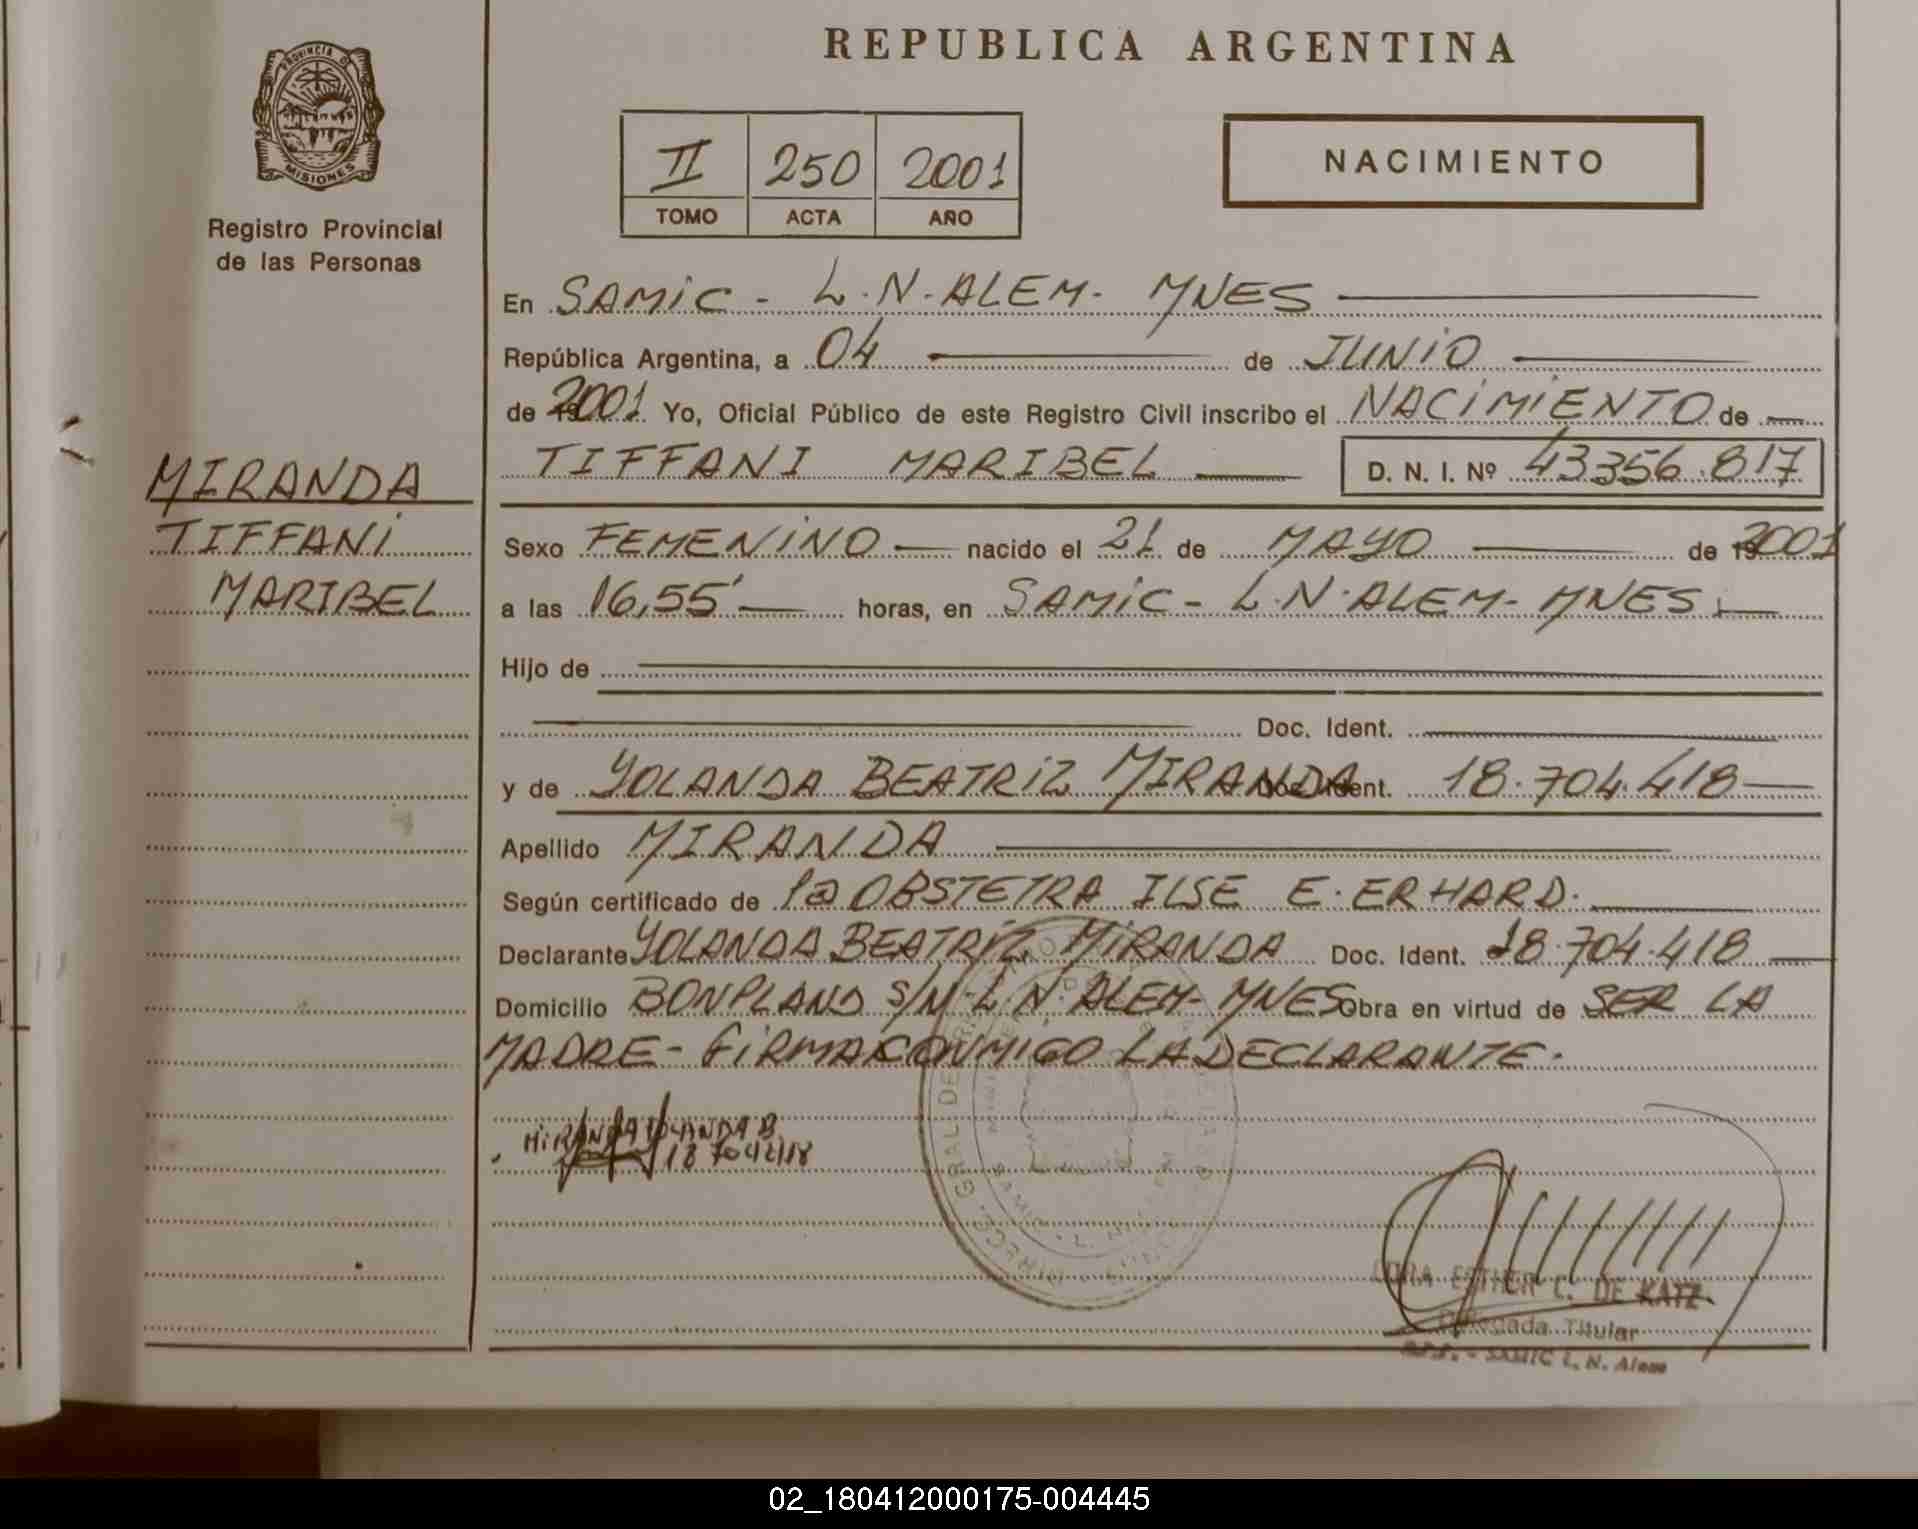 REPUBLICA ARGENTINA
PROVINCIA DE
MISIONES
Registro Provincial
de las Personas
II 250 2001
TOMO ACTA AÑO
NACIMIENTO
En SAMIC - L.N.ALEM- MNES
República Argentina, a 04 de JUNIO
de 2001 Yo, Oficial Público de este Registro Civil inscribo el NACIMIENTO de
TIFFANI MARIBEL D. N. I. Nº 43356.817
MIRANDA
TIFFANI
MARIBEL
Sexo FEMENINO nacido el 21 de MAYO de 2001
a las 16,55' horas, en SAMIC - L.N.ALEM- MNES
Hijo de
Doc. Ident.
y de YOLANDA BEATRIZ MIRANDA Doc. Ident. 18.704.418
Apellido MIRANDA
Según certificado de la OBSTETRA ILSE E. ERHARD.
Declarante YOLANDA BEATRIZ MIRANDA Doc. Ident. 18.704.418
Domicilio BONPLAND S/N-L.N.ALEM- MNES Obra en virtud de SER LA
MADRE- FIRMA CONMIGO LA DECLARANTE.
MIRANDA YOLANDA B
18704418
ESTHER C. DE KATZ
Delegada Titular
SAMIC L. N. Alem
02_180412000175-004445